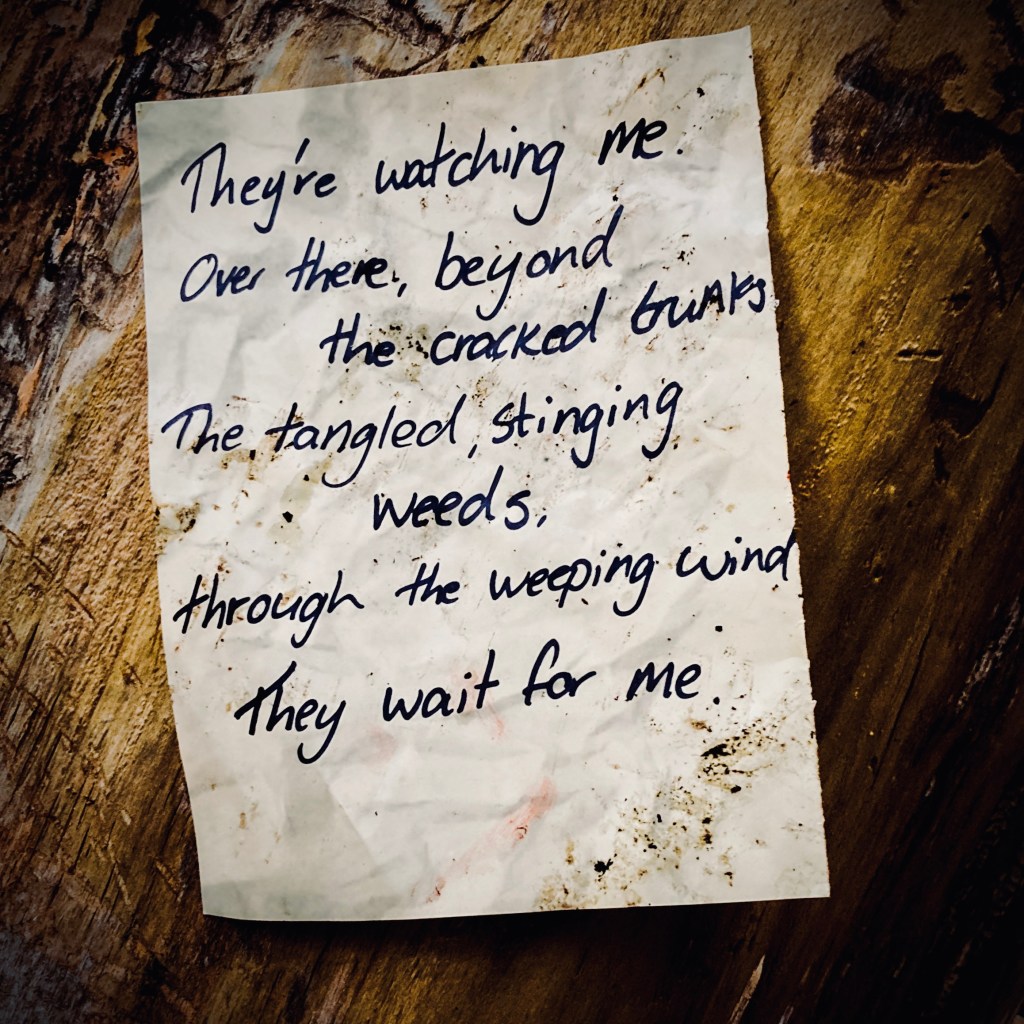 They're watching me.
Over there, beyond
the cracked trunks.
The tangled, stinging
weeds,
through the weeping wind
They wait for me.